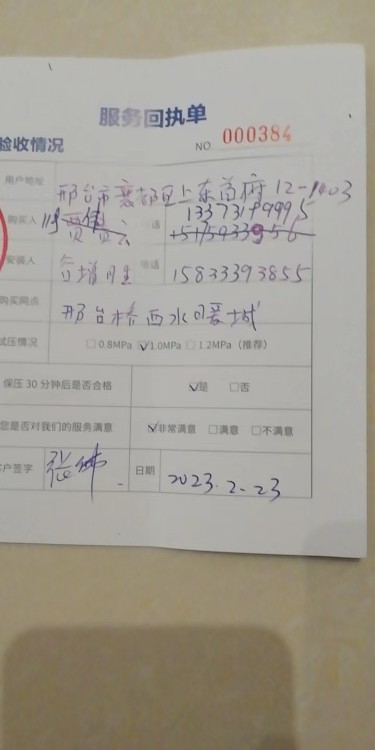 服务回执单
验收情况
NO 000384
用户地址 邢台市襄都区上东首府12-1403
购买人
13373199995
安装人 电话 15833393855
购买网点 邢台桥西水暖城
试压情况 □0.8MPa ☑1.0MPa □1.2MPa（推荐）
保压30分钟后是否合格 ☑是 □否
您是否对我们的服务满意 ☑非常满意 □满意 □不满意
客户签字 日期 2023.2-23